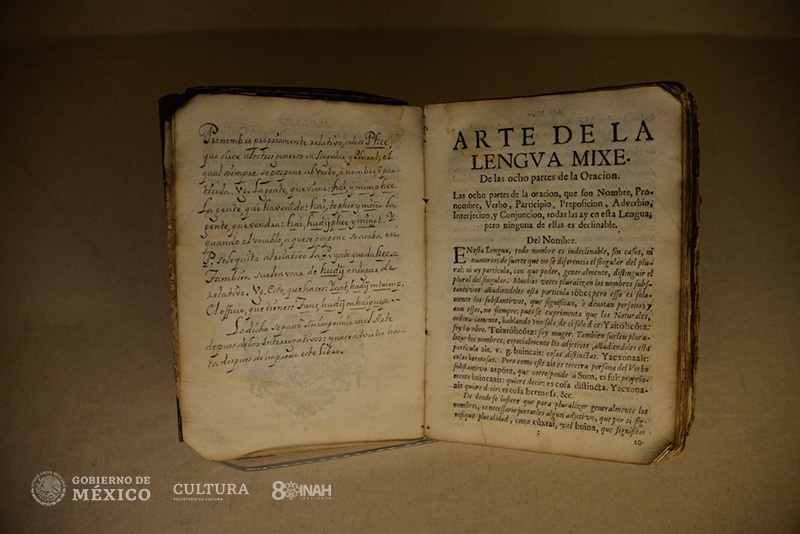 Pronombre propriamente relativo, solo es Phee,
que sirve
el
qual siempre se pospone al verbo, o nombre,
Vg. La gente, que viene: hai,
La gente, que ha venido: hai,
gente, que vendra: hai,
quando el vocablo, a que se pospone se acaba en
P. se le quita
Tambien suelen usar de hudij en lugar de
relativo. Vg. Esto, que hazes:
El officio, que tienes:
Lo dicho se pone
despues de los Interrogativos: y no se advirtio has-
ta despues de impreso este libro.
ARTE DE LA
LENGVA MIXE.
De las ocho partes de la Oracion.
Las ocho partes de la oracion, que son Nombre, Pro-
nombre, Verbo, Participio, Preposicion, Adverbio,
Interjecion, y Conjuncion, todas las ay en esta Lengua;
pero ninguna de ellas es declinable.
Del Nombre.
ENesta Lengua, todo nombre es indeclinable, sin casos, ni
numeros: de suerte que no se diferencia el singular del plu-
ral; ni ay particula, con que poder, generalmente, distinguir el
plural del singular. Muchas veces pluralizan los nombres subs-
tantivos añadiendoles esta particula töhc; pero esso es sola-
mente los substantivos, que significan, ò denotan personas y
aun essos, no siempre; pues se experimenta que los Naturales,
ordinariamente, hablando uno solo de si solo dice: Yaitöhcötz:
soy hombre. Toixtöhcötz: soy muger. Tambien suelen plura-
lizar los nombres, especialmente los adjetivos, añadiendoles esta
particula ait. v. g. huincait: cosas distinctas. Yacxonaait:
cosas hermosas. Pero como este ait es tercera persona del Verbo
substantivo que corresponde à Sum, es fui: propria-
mente huincait: quiere decir: es cosa distincta. Yacxona-
ait quiere decir: es cosa hermosa. &c.
De donde se infiere que para pluralizar generalmente los
nombres, es necessario juntarles algun adjetivo, que por si sig-
nifique pluralidad, como vel huina, que significan
to-
GOBIERNO DE
MÉXICO
CULTURA
SECRETARÍA DE CULTURA
80 INAH